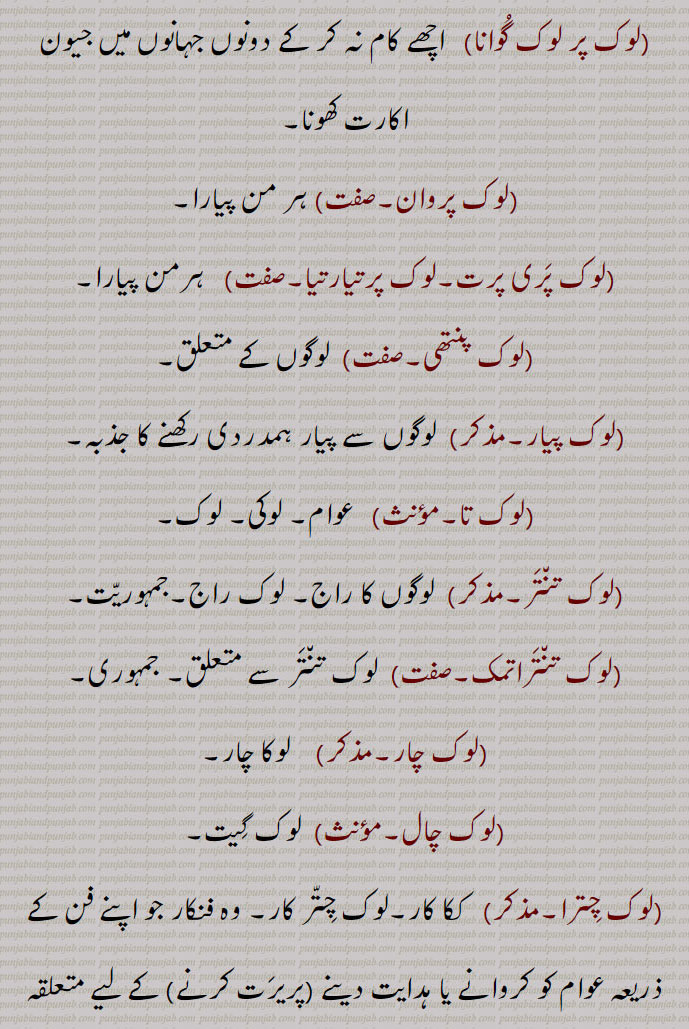 (لوک پر لوک گُوانا) اچھے کام نہ کر کے دونوں جہانوں میں جیون
اکارت کھونا۔
(لوک پروان۔صفت) ہر من پیارا۔
(لوک پَری پرت۔لوک پرتیارتیا۔صفت) ہرمن پیارا۔
(لوک پنتھی۔صفت) لوگوں کے متعلق۔
(لوک پیار۔مذکر) لوگوں سے پیار ہمدردی رکھنے کا جذبہ۔
(لوک تا۔مؤنث) عوام۔ لوکی۔ لوک۔
(لوک تنّتَر۔مذکر) لوگوں کا راج۔ لوک راج۔جمہوریّت۔
(لوک تنّتَراتمک۔صفت) لوک تنّتَر سے متعلق۔ جمہوری۔
(لوک چار۔مذکر) لوکا چار۔
(لوک چال۔مؤنث) لوک گِیت۔
(لوک چِترا۔مذکر) ککا کار۔لوک چِتّر کار۔ وہ فنکار جو اپنے فن کے
ذریعہ عوام کو کروانے یا ہدایت دینے (پریرَت کرنے) کے لیے متعلقہ